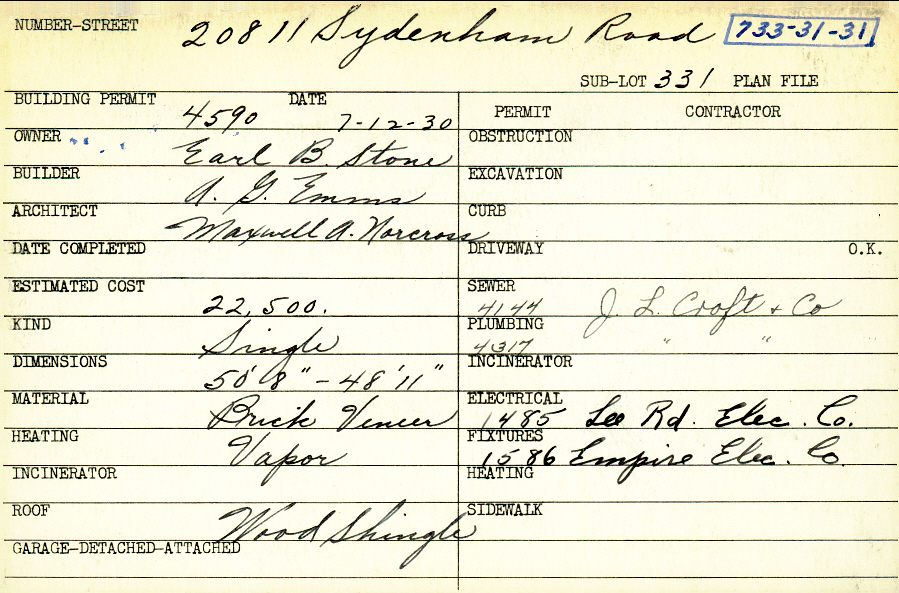 NUMBER-STREET 20811 Sydenham Road 733-31-31
SUB-LOT 331 PLAN FILE
BUILDING PERMIT 4590 DATE 7-12-30
OWNER Earl B. Stone
BUILDER A. G. Emms
ARCHITECT Maxwell A. Norcross
DATE COMPLETED
ESTIMATED COST 22,500.
KIND Single
DIMENSIONS 50'8" - 48'11"
MATERIAL Brick Veneer
HEATING Vapor
INCINERATOR
ROOF Wood Shingle
GARAGE-DETACHED-ATTACHED
PERMIT CONTRACTOR
OBSTRUCTION
EXCAVATION
CURB
DRIVEWAY O.K.
SEWER 4144 J. L. Croft & Co
PLUMBING 4317 " "
INCINERATOR
ELECTRICAL 1485 Lee Rd. Elec. Co.
FIXTURES 1586 Empire Elec. Co.
HEATING
SIDEWALK